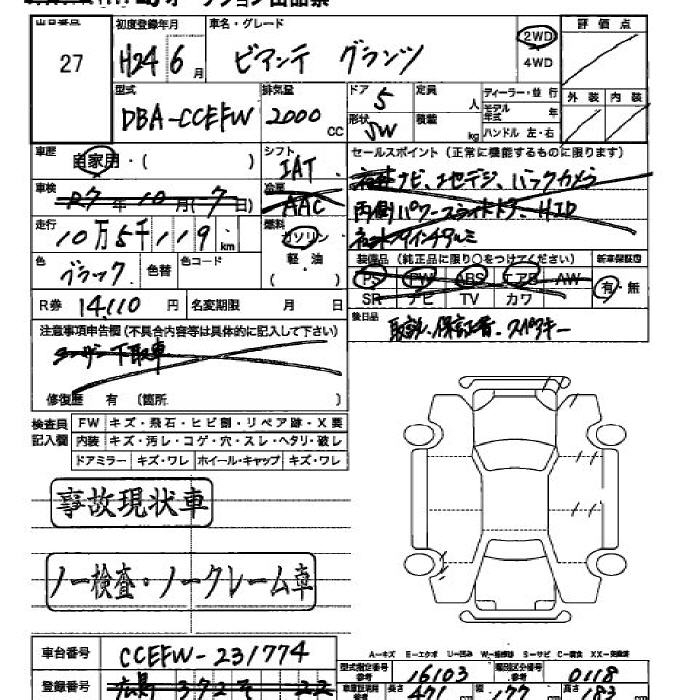 オークション出品票
27
初度登録年月
H24 6月
車名・グレード
ビアンテ グランツ
2WD
4WD
評価点
外装 内装
型式
DBA-CCEFW
排気量
2000 CC
ドア 5
形状 SW
定員 人
積載 kg
ディーラー・並行
モデル年式 年
ハンドル 左・右
車歴
自家用・( )
シフト
IAT
セールスポイント(正常に機能するものに限ります)
車検
R7年10月(7日)
冷房
AAC
ナビ、エセデジ、バックカメラ
両側パワースライドドア、HID
走行
10万5千119km
燃料
ガソリン
軽油
( )
色
ブラック
色替
色コード
装備品(純正品に限り○をつけてください)
新車保証書
PS PW ABS エアB AW
SR ナビ TV カワ
有・無
R券 14,110円
名変期限 月 日
後日品
取説、保証書、スペアキー
注意事項申告欄(不具合内容等は具体的に記入して下さい)
ユーザー下取車
修復歴 有 (箇所 )
検査員記入欄
FW キズ・飛石・ヒビ割・リペア跡・X要
内装 キズ・汚レ・コゲ・穴・スレ・ヘタリ・破レ
ドアミラー キズ・ワレ ホイール・キャップ キズ・ワレ
事故現状車
ノー検査・ノークレーム車
A－キズ E－エクボ U－凹み W－補修跡 S－サビ C－腐食 XX－交換済
車台番号
CCEFW-231774
型式指定番号
16103
類別区分番号
0118
登録番号
広島 372
長さ 471 cm
幅 177 cm
高さ 183 cm